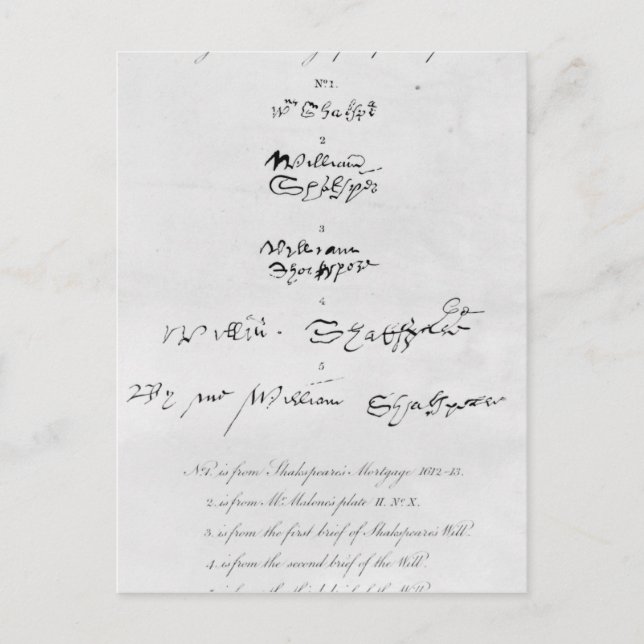 No. 1.
Wm Shaksp
2
William
Shakspe
3
William
Shakspere
4
Willm. Shakspere
5
By me William Shakspeare
No. 1. is from Shakspeare's Mortgage 1612-13.
2. is from Mr. Malone's plate II. No. X.
3. is from the first brief of Shakspeare's Will.
4. is from the second brief of the Will.